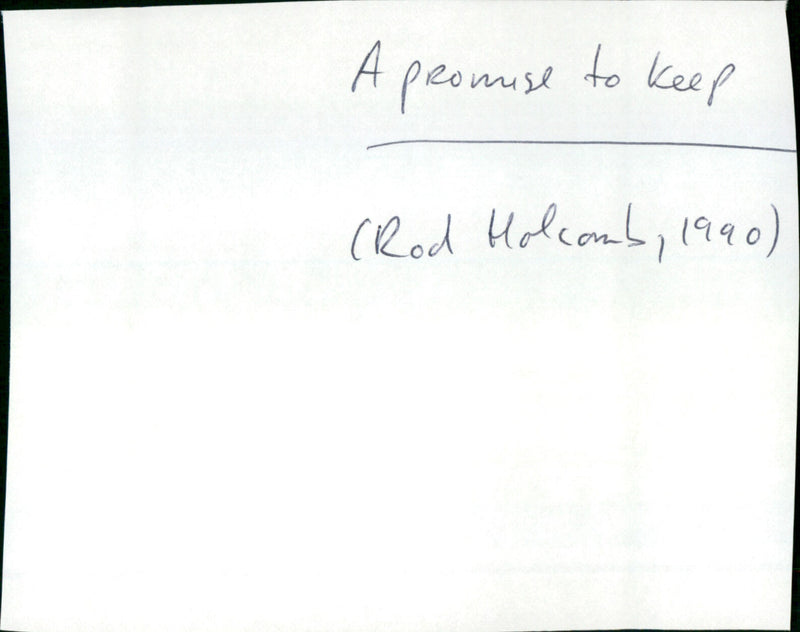 A promise to keep
(Rod Holcomb, 1990)